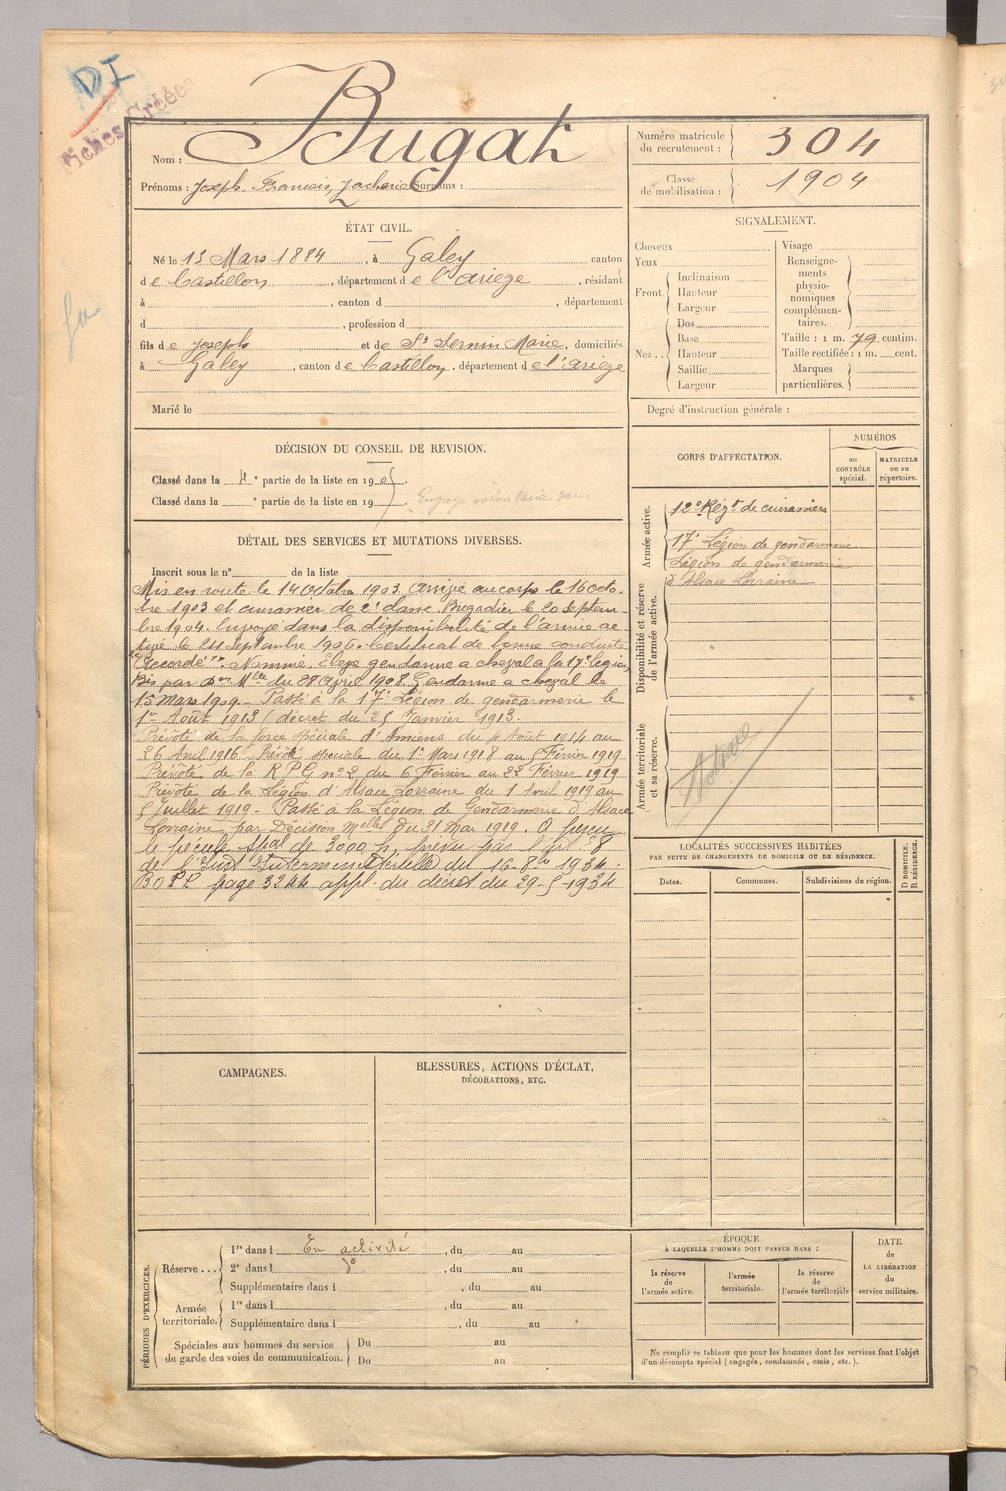 DI
Fiches Créées
Nom : Bugat
Prénoms : Joseph Francois, Zacharie Surnoms :
Numéro matricule du recrutement : 304
Classe de mobilisation : 1904
ÉTAT CIVIL.
Né le 13 Mars 1884, à Galey canton
de Castillon, département de l'Ariège, résidant
à , canton d , département
d , profession d
fils de Joseph et de St Sernin Marie, domiciliés
à Galey, canton de Castillon, département de l'Ariège
Marié le
SIGNALEMENT.
Cheveux
Yeux
Front. Inclinaison
Hauteur
Largeur
Nez .. Dos
Base
Hauteur
Saillie
Largeur
Visage
Renseigne-
ments
physio-
nomiques
complémen-
taires.
Taille : 1 m. 79 centim.
Taille rectifiée : 1 m. cent.
Marques
particulières.
Degré d'instruction générale :
DÉCISION DU CONSEIL DE REVISION.
Classé dans la 4e partie de la liste en 1905.
Classé dans la e partie de la liste en 19
Engagé volontaire
DÉTAIL DES SERVICES ET MUTATIONS DIVERSES.
Inscrit sous le n° de la liste
Mis en route le 14 Octobre 1903 arrivé au corps le 16 octo-
bre 1903 et cuirassier de 2e classe Brigadier le 20 Septem-
bre 1904. Envoyé dans la disponibilité de l'armée ac-
tive le 24 Septembre 1906. Certificat de bonne conduite
"Accordé". Nommé élève gendarme à cheval à la 17e légion
bis par Don Mlle du 28 Avril 1908 Gendarme à cheval le
15 Mars 1909. Passé à la 17e Légion de gendarmerie le
1er Août 1913 (décret du 25 Janvier 1913.
Prévôté de la force spéciale d'Amiens du 4 Août 1914 au
26 Avril 1916 Prévôté spéciale du 1er Mars 1918 au 5 Février 1919
Prévôté de la R P G n° 2 du 6 Février au 22 Février 1919
Prévôté de la Légion d'Alsace Lorraine du 1 Avril 1919 au
5 Juillet 1919. Passé à la Légion de Gendarmerie d'Alsace
Lorraine par Décision Mielle du 31 mai 1919. A perçu
le pécule spal de 3000 f, prévu par l'art. 8
de l'Inst Interministérielle du 16-8bre 1934.
BOPP page 3244 appl. du décret du 29-5-1934
CORPS D'AFFECTATION.
NUMÉROS
au CONTRÔLE spécial.
MATRICULE ou au répertoire.
Armée active.
12e Régt de cuirassiers
17e Légion de gendarmerie
Légion de gendarmerie
d'Alsace Lorraine
Disponibilité et réserve de l'armée active.
Armée territoriale et sa réserve.
LOCALITÉS SUCCESSIVES HABITÉES
PAR SUITE DE CHANGEMENTS DE DOMICILE OU DE RÉSIDENCE.
Dates.
Communes.
Subdivisions de région.
D DOMICILE.
R RÉSIDENCE.
CAMPAGNES.
BLESSURES, ACTIONS D'ÉCLAT,
DÉCORATIONS, ETC.
PÉRIODES D'EXERCICES.
Réserve ... 1re dans l En activité, du au
2e dans l do, du au
Supplémentaire dans l , du au
Armée territoriale. 1re dans l , du au
Supplémentaire dans l , du au
Spéciales aux hommes du service
de garde des voies de communication. Du au
Du au
ÉPOQUE
À LAQUELLE L'HOMME DOIT PASSER DANS :
la réserve de l'armée active.
l'armée territoriale.
la réserve de l'armée territoriale
DATE
de
LA LIBÉRATION
du
service militaire.
Ne remplir ce tableau que pour les hommes dont les services font l'objet
d'un décompte spécial (engagés, condamnés, omis, etc.).